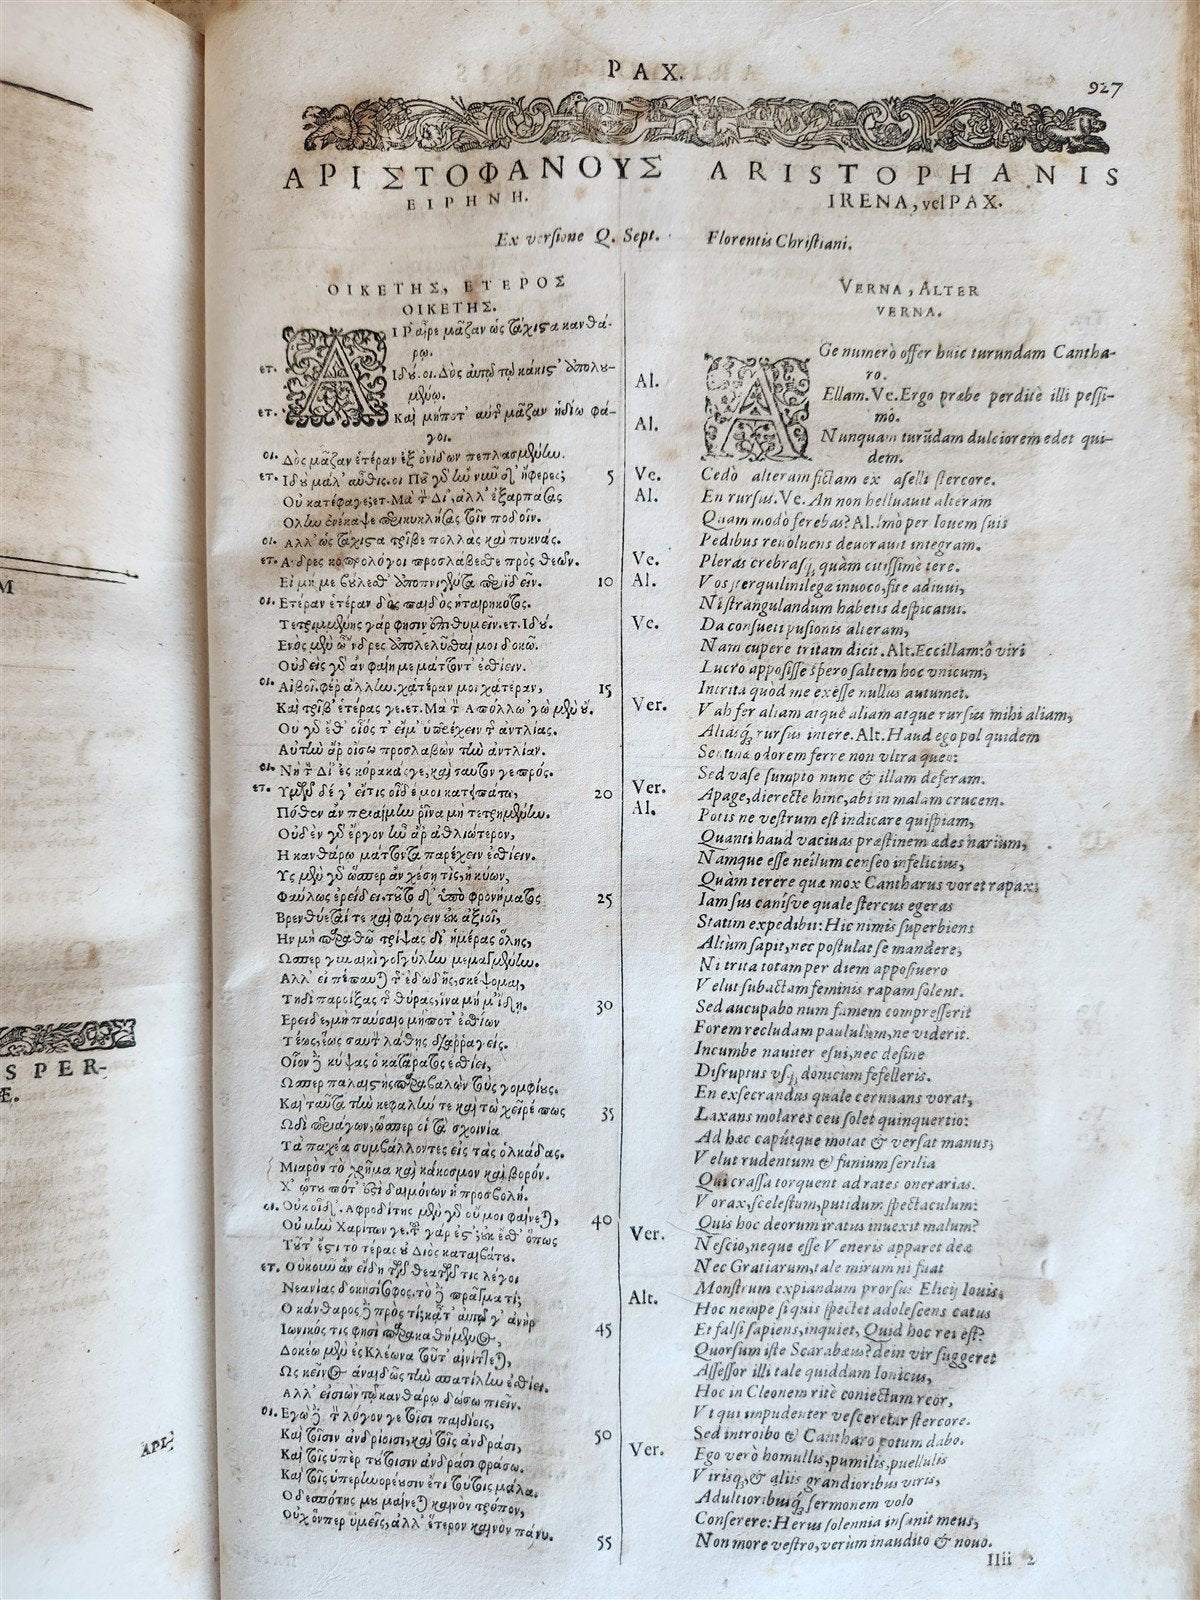 PAX.
927
ΑΡΙΣΤΟΦΑΝΟΥΣ
ΕΙΡΗΝΗ.
ARISTOPHANIS
IRENA, vel PAX.
Ex versione Q. Sept. Florentis Christiani.
ΟΙΚΕΤΗΣ, ΕΤΕΡΟΣ
ΟΙΚΕΤΗΣ.
ΑΙΡ' αἶρε μᾶζαν ὡς τάχιστα κανθά-
ρῳ.
ετ. Ιδού. οι. Δὸς αὐτῷ τῷ κάκιστ' ἀπολου-
μένῳ.
ετ. Καὶ μήποτ' αὐτῆς μᾶζαν ἡδίω φά-
γοι.
οι. Δὸς μᾶζαν ἑτέραν ἐξ ὀνίδων πεπλασμένην.
ετ. Ιδοὺ μάλ' αὖθις. οι Ποῦ γὸ ἣν νιῦ δὴ 'φερες; 5
Οὐ κατέφαγε; ετ. Μὰ τὸν Δί', ἀλλ' ἐξαρπάσας
Ολην ἐνέκαψε περικυκλήσας τοῖν ποδοῖν.
οι. Αλλ' ὡς τάχιστα τρῖβε πολλὰς καὶ πυκνάς.
ετ. Ανδρες κοπρολόγοι προσλάβεσθε πρὸς θεῶν.
Εἰ μή με βούλεσθ' ἀποπνιγέντα περιιδεῖν. 10
οι. Ετέραν ἑτέραν δὸς παιδὸς ἡταιρηκότος.
Τετριμμένης γάρ φησιν ἐπιθυμεῖν. ετ. Ιδού.
Ενὸς μὲν ὦ 'νδρες ἀπολελύσθαι μοι δοκῶ.
Οὐδεὶς γὸ ἂν φαίη με μάττοντ' ἐσθίειν.
οι. Αἰβοῖ. φέρ' ἄλλην. χἀτέραν μοι χἀτέραν, 15
Καὶ τρῖβ' ἑτέρας γε. ετ. Μὰ τὸν Απόλλω 'γὼ μὲν οὔ.
Οὐ γὸ ἔθ' οἷός τ' εἴμ' ὑπερέχειν τῆς ἀντλίας.
Αὐτὴν ἄρ' οἴσω προσλαβὼν τὴν ἀντλίαν.
οι. Νὴ τὸν Δί' ἐς κόρακάς γε, καὶ σαυτόν γε πρός.
ετ. Υμῶν δέ γ' εἴ τις οἶδέ μοι κατειπάτω, 20
Πόθεν ἂν πριαίμην ῥῖνα μὴ τετρημένην.
Οὐδὲν γὸ ἔργον ἦν ἄρ' ἀθλιώτερον,
Η κανθάρῳ μάττοντα παρέχειν ἐσθίειν.
Υς μὲν γὸ ὥσπερ ἂν χέσῃ τις, ἢ κύων,
Φαύλως ἐρείδει. τοῦτο δ' ὑπὸ φρονήματος 25
Βρενθύεταί τε καὶ φάγειν ὐκ ἀξιοῖ,
Ην μὴ παραθῶ τρίψας δι' ἡμέρας ὅλης,
Ωσπερ γυναικὶ γογγύλην μεμαγμένην.
Αλλ' εἰ πέπαυται τῆς ἐδωδῆς, σκέψομαι,
Τῃδὶ παροίξας τῆς θύρας, ἵνα μή μ' ἴδῃ. 30
Ερειδε, μὴ παύσαιο μήποτ' ἐσθίων
Τέως, ἕως σαυτὸν λάθῃς διαρραγείς.
Οἷον δὲ κύψας ὁ κατάρατος ἐσθίει,
Ωσπερ παλαιστὴς παραβαλὼν τοὺς γομφίους.
Καὶ ταῦτα τὴν κεφαλήν τε καὶ τὼ χεῖρέ πως 35
Ωδὶ περιάγων, ὥσπερ οἱ τὰ σχοινία
Τὰ παχέα συμβάλλοντες εἰς τὰς ὁλκάδας.
Μιαρὸν τὸ χρῆμα καὶ κάκοσμον καὶ βορόν.
Χ' ὥτου πότ' ἐστὶ δαιμόνων ἡ προσβολή.
οι. Οὐκ οἶδ'. Αφροδίτης μὲν γὸ οὔ μοι φαίνεται, 40
Οὐ μὴν Χαρίτων γε. τοῦ γάρ ἐστ'; ὐκ ἔσθ' ὅπως
Τοῦτ' ἔστι τὸ τέρας ὐ Διὸς καταιβάτου.
ετ. Οὐκοῦν ἂν εἴδη τῶν θεατῶν τις λέγοι
Νεανίας δοκησίσοφος. τὸ δὲ πρᾶγμα τί;
Ο κάνθαρος δὲ πρὸς τί; κᾆτ' αὐτῷ γ' ἀνὴρ
Ιωνικός τις φησὶ παρακαθήμενος, 45
Δοκέω μὲν ἐς Κλέωνα τοῦτ' αἰνίττεται,
Ως κεῖνος ἀναιδῶς τὴν σπατίλην ἐσθίει.
Αλλ' εἰσιὼν τῷ κανθάρῳ δώσω πιεῖν.
οι. Εγὼ δὲ τὸν λόγον γε τοῖσι παιδίοις,
Καὶ τοῖσιν ἀνδρίοισι, καὶ τοῖς ἀνδράσι, 50
Καὶ τοῖς ὑπὲρ τούτοισιν ἀνδράσι φράσω.
Καὶ τοῖς ὑπερηνορέουσιν ἔτι τούτοις μάλα.
Ο δεσπότης μου μαίνεται καινὸν τρόπον,
Οὐχ ὅνπερ ὑμεῖς, ἀλλ' ἕτερον καινὸν πάνυ. 55
VERNA, ALTER
VERNA.
AGe numerò offer huic turundam Cantha-
ro.
Al. Ellam. Ve. Ergo præbe perditè illi pessi-
mò.
Al. Nunquam turũdam dulciorem edet qui-
dem.
Ve. Cedò alteram fictam ex aselli stercore.
Al. En rursus. Ve. An non helluauit alteram
Quam modò ferebas? Al. Imò per Iouem suis
Pedibus reuoluens deuorauit integram.
Ve. Pleras crebrasq́;, quàm citissimè tere.
Al. Vos sterquilinilegæ inuoco, fite adiutui,
Ni strangulandum habetis despicatui.
Ve. Da consueti pusionis alteram,
Nam cupere tritam dicit. Alt. Eccillam: ô viri
Lucro apposisse spero saltem hoc vnicum,
Intrita quòd me exèsse nullus autumet.
Ver. Vah fer aliam atque aliam atque rursus mihi aliam,
Aliasq́; rursus intere. Alt. Haud ego pol quidem
Sentina odorem ferre non vltra queo:
Sed vase sumpto nunc & illam deferam.
Ver. Apage, dierecte hinc, abi in malam crucem.
Al. Potis ne vestrum est indicare quispiam,
Quanti haud vaciuas præstinem ædes narium,
Namque esse neilum censeo infelicius,
Quàm terere quæ mox Cantharus voret rapax.
Iam sus canisve quale stercus egeras
Statim expedibit: Hic nimis superbiens
Altùm sapit, nec postulat se mandere,
Ni trita totam per diem apposuero
Velut subactam feminis rapam solent.
Sed aucupabo num famem compresserit
Forem recludam paululùm, ne viderit.
Incumbe nauiter esui, nec desine
Disruptus vsq́; donicum fefelleris.
En exsecrandus quale cernuans vorat,
Laxans molares ceu solet quinquertio:
Ad hæc capútque motat & versat manus,
Velut rudentum & funium serilia
Qui crassa torquent ad rates onerarias.
Vorax, scelestum, putidum spectaculum:
Quis hoc deorum iratus inuexit malum?
Ver. Nescio, neque esse Veneris apparet deæ
Nec Gratiarum, tale mirum ni fuat
Monstrum expiandum prorsus Elicij Iouis.
Alt. Hoc nempe si quis spectet adolescens catus
Et falsi sapiens, inquiet, Quid hoc rei est?
Quorsum iste Scarabæus? dein vir suggeret
Assessor illi tale quiddam Ionicus,
Hoc in Cleonem ritè coniectum reor,
Vt qui impudenter vesceretur stercore.
Sed introibo & Cantharo potum dabo.
Ver. Ego verò homullis, pumilis, puellulis
Virisq́;, & aliis grandioribus viris,
Adultioribusq́; sermonem volo
Conserere: Herus solennia insanit meus,
Non more vestro, verùm inaudito & nouo.
IIii 2
M
S PER-
Æ.
ΑΡΙ-